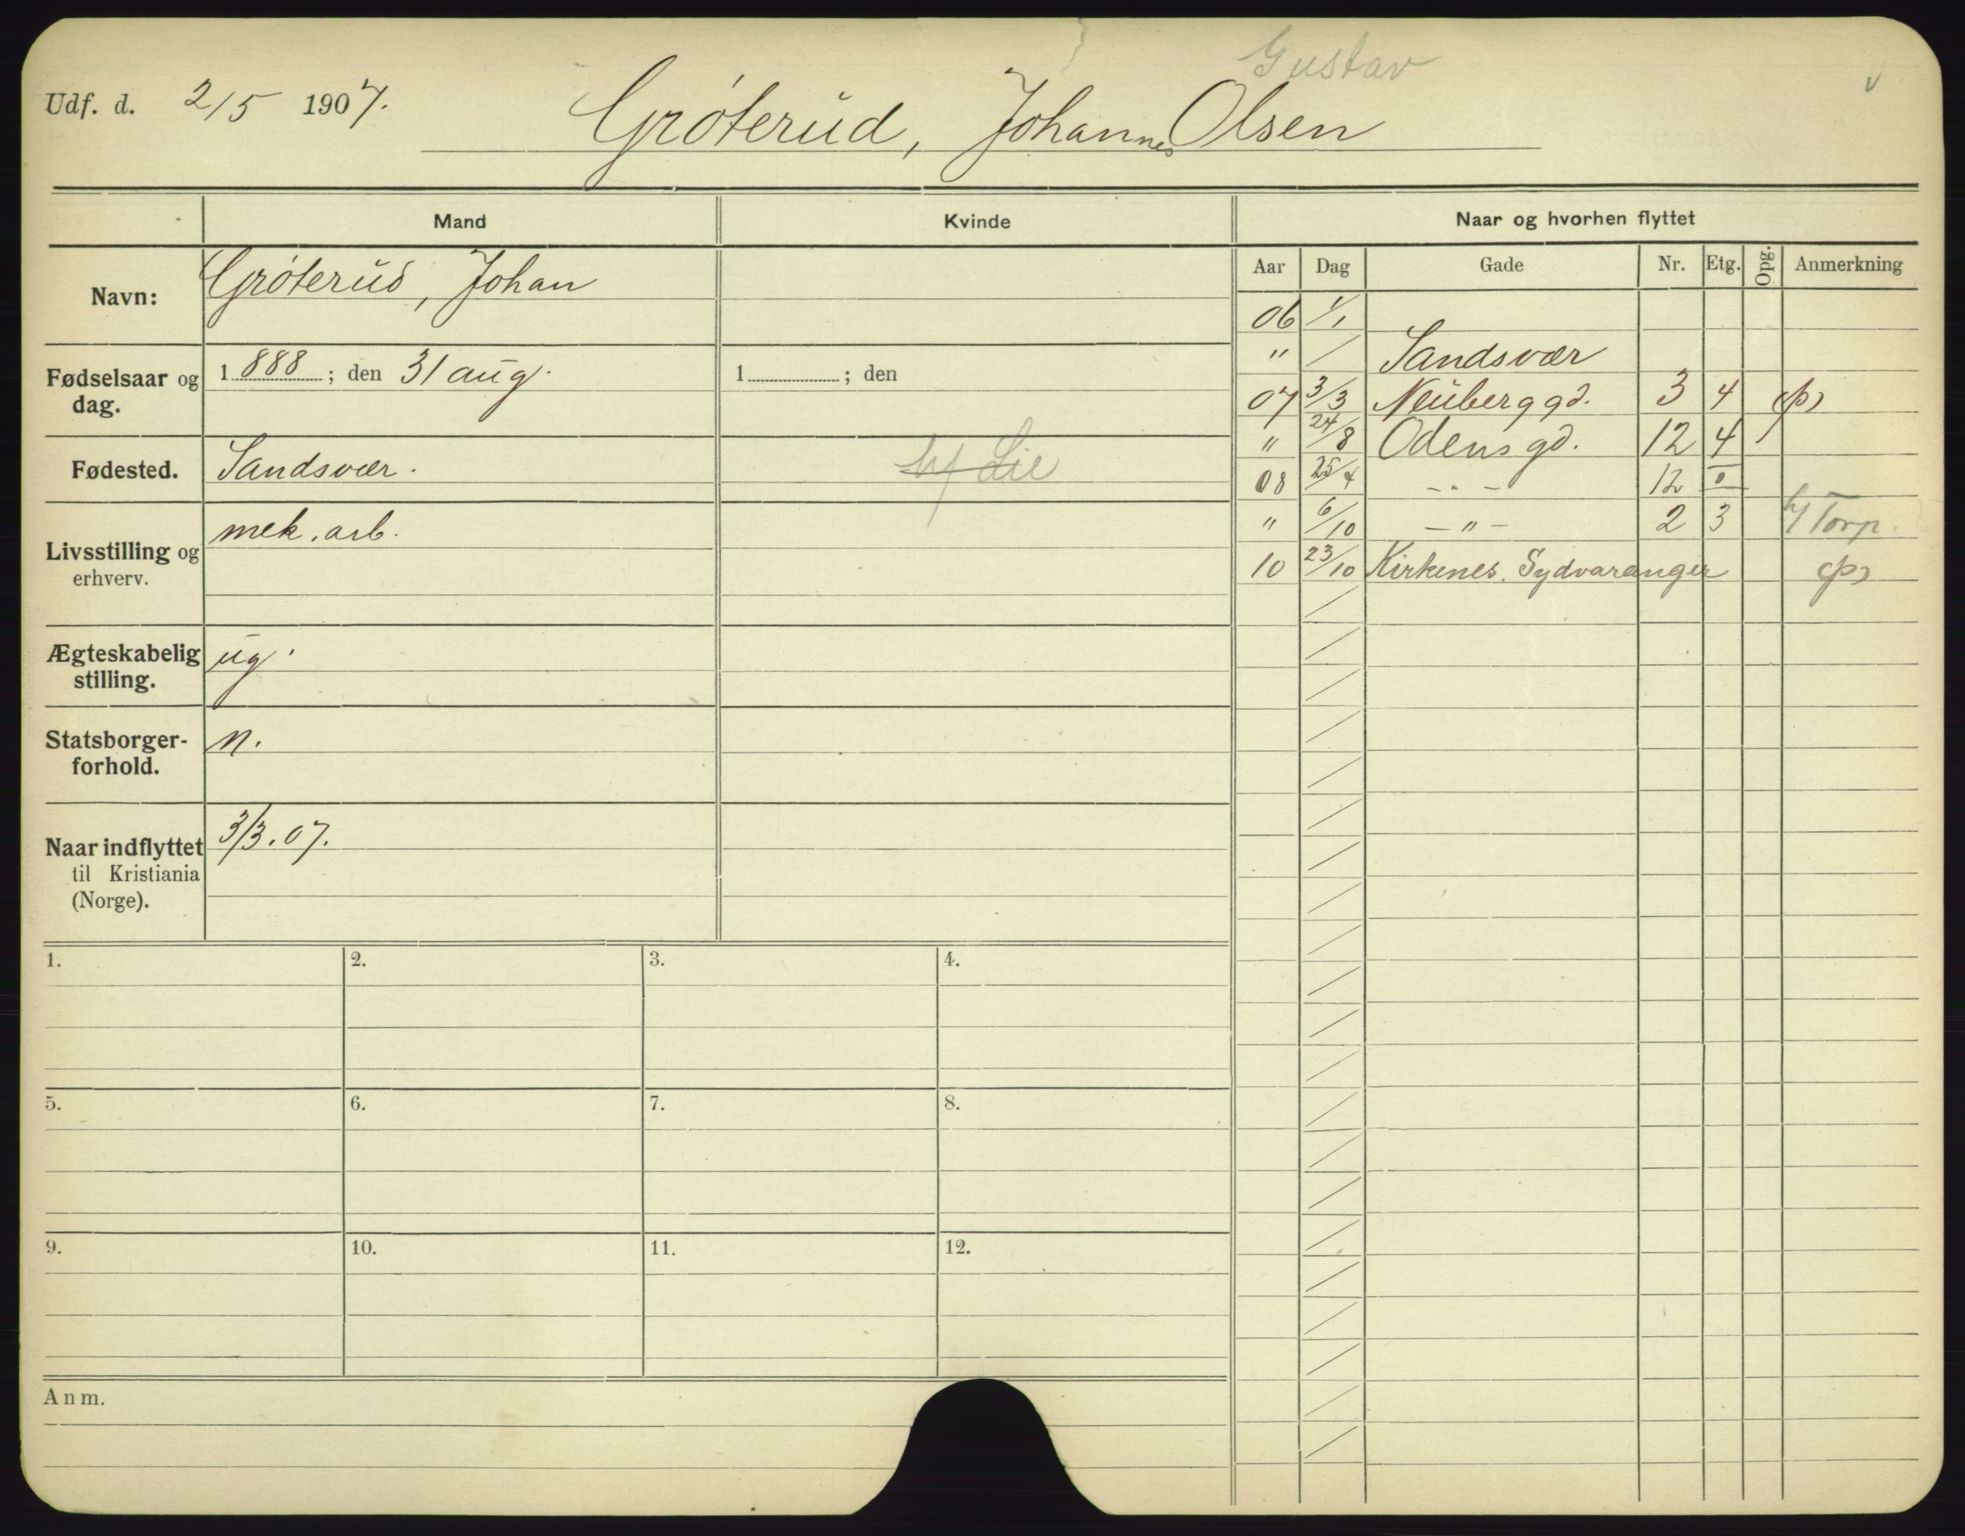 Gustav
Udf. d. 2/5 1907. Grøterud, Johannes Olsen
Mand Kvinde Naar og hvorhen flyttet
Aar Dag Gade Nr. Etg. Opg. Anmerkning
Navn: Grøterud, Johan
Fødselsaar og dag. 1888; den 31 aug. 1 ; den
Fødested. Sandsvær. h/ Lie
Livsstilling og erhverv. mek. arb.
Ægteskabelig stilling. ug.
Statsborgerforhold. n.
Naar indflyttet til Kristiania (Norge). 3/3.07.
06 1/1
" / Sandsvær
07 3/3 Neuberggd. 3 4 (p)
" 24/8 Odensgd. 12 4
08 25/4 — " — 12
" 6/10 — " — 2 3 h/ Torp.
10 23/10 Kirkenes. Sydvaranger (p)
1. 2. 3. 4.
5. 6. 7. 8.
9. 10. 11. 12.
Anm.